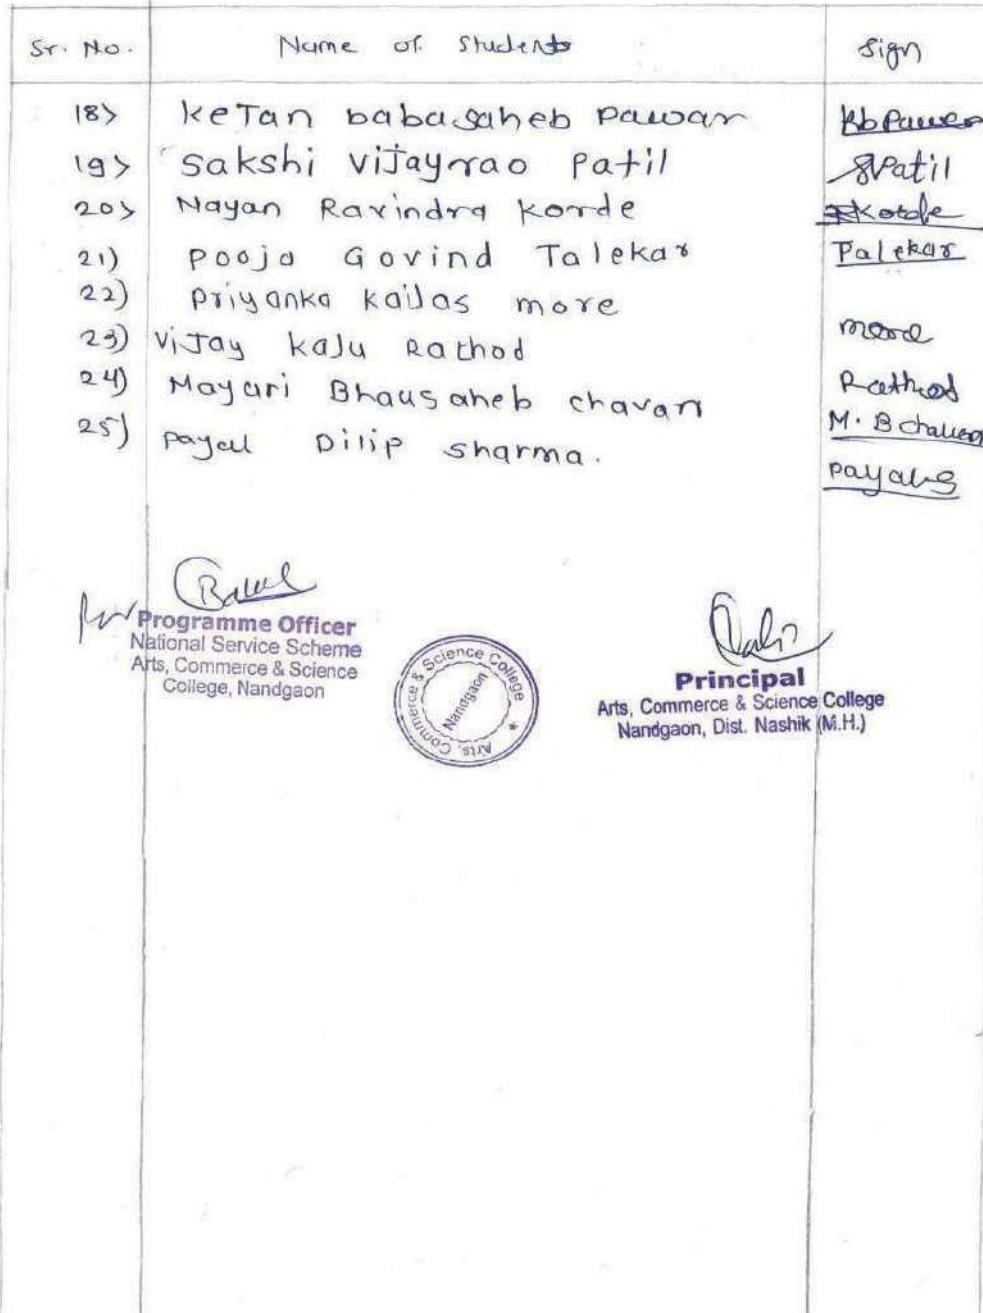 Sr. No. Name of Students Sign
18> keTan babasaheb pawar kb Pawar
19> Sakshi viJayrao Patil SPatil
20> Nayan Ravindra Korde Korde
21) pooja Govind Talekar Palekar
22) priyanka kailas more more
23) viJay kalu Rathod Rathod
24) Mayuri Bhausaheb chavan M. B chavan
25) payal Dilip sharma. payals
Programme Officer
National Service Scheme
Arts, Commerce & Science
College, Nandgaon
Arts, Commerce & Science College
Nandgaon
Principal
Arts, Commerce & Science College
Nandgaon, Dist. Nashik (M.H.)